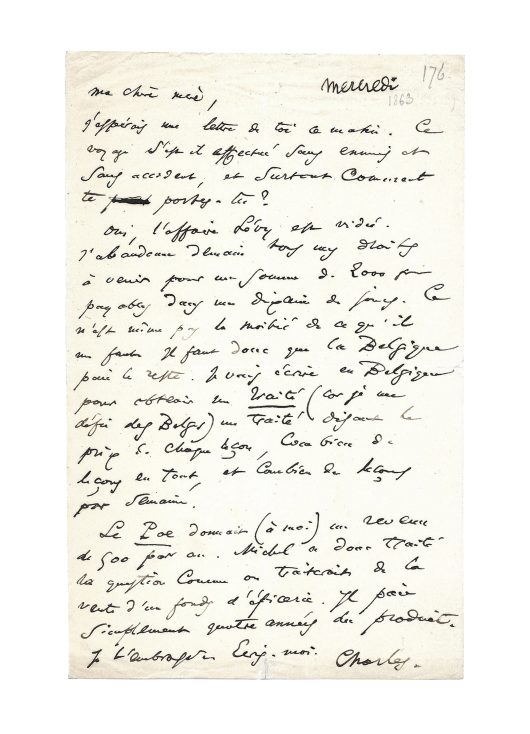 mercredi 176
1863
ma chère mère,
j'espérais une lettre de toi ce matin. Ce
voyage s'est il effectué sans ennuis et
sans accident, et surtout Comment
te portes-tu?
Oui, l'affaire Lévy est vidée.
J'abandonne demain tous mes droits
à venir pour une somme de 2000 fr
payables dans une dizaine de jours. Ce
n'est même pas la moitié de ce qu'il
me faut. Il faut donc que la Belgique
paie le reste. Je vais écrire en Belgique
pour obtenir un traité (car je me
défie des Belges) un traité disant le
prix de chaque leçon, Combien de
leçons en tout, et Combien de leçons
par semaine.
Le Poe donnait (à moi) un revenu
de 500 par an. Michel a donc traité
la question Comme on traiterait de la
vente d'un fonds d'épicerie. Il paie
simplement quatre années du produit.
Je t'embrasse. Ecris-moi. Charles.